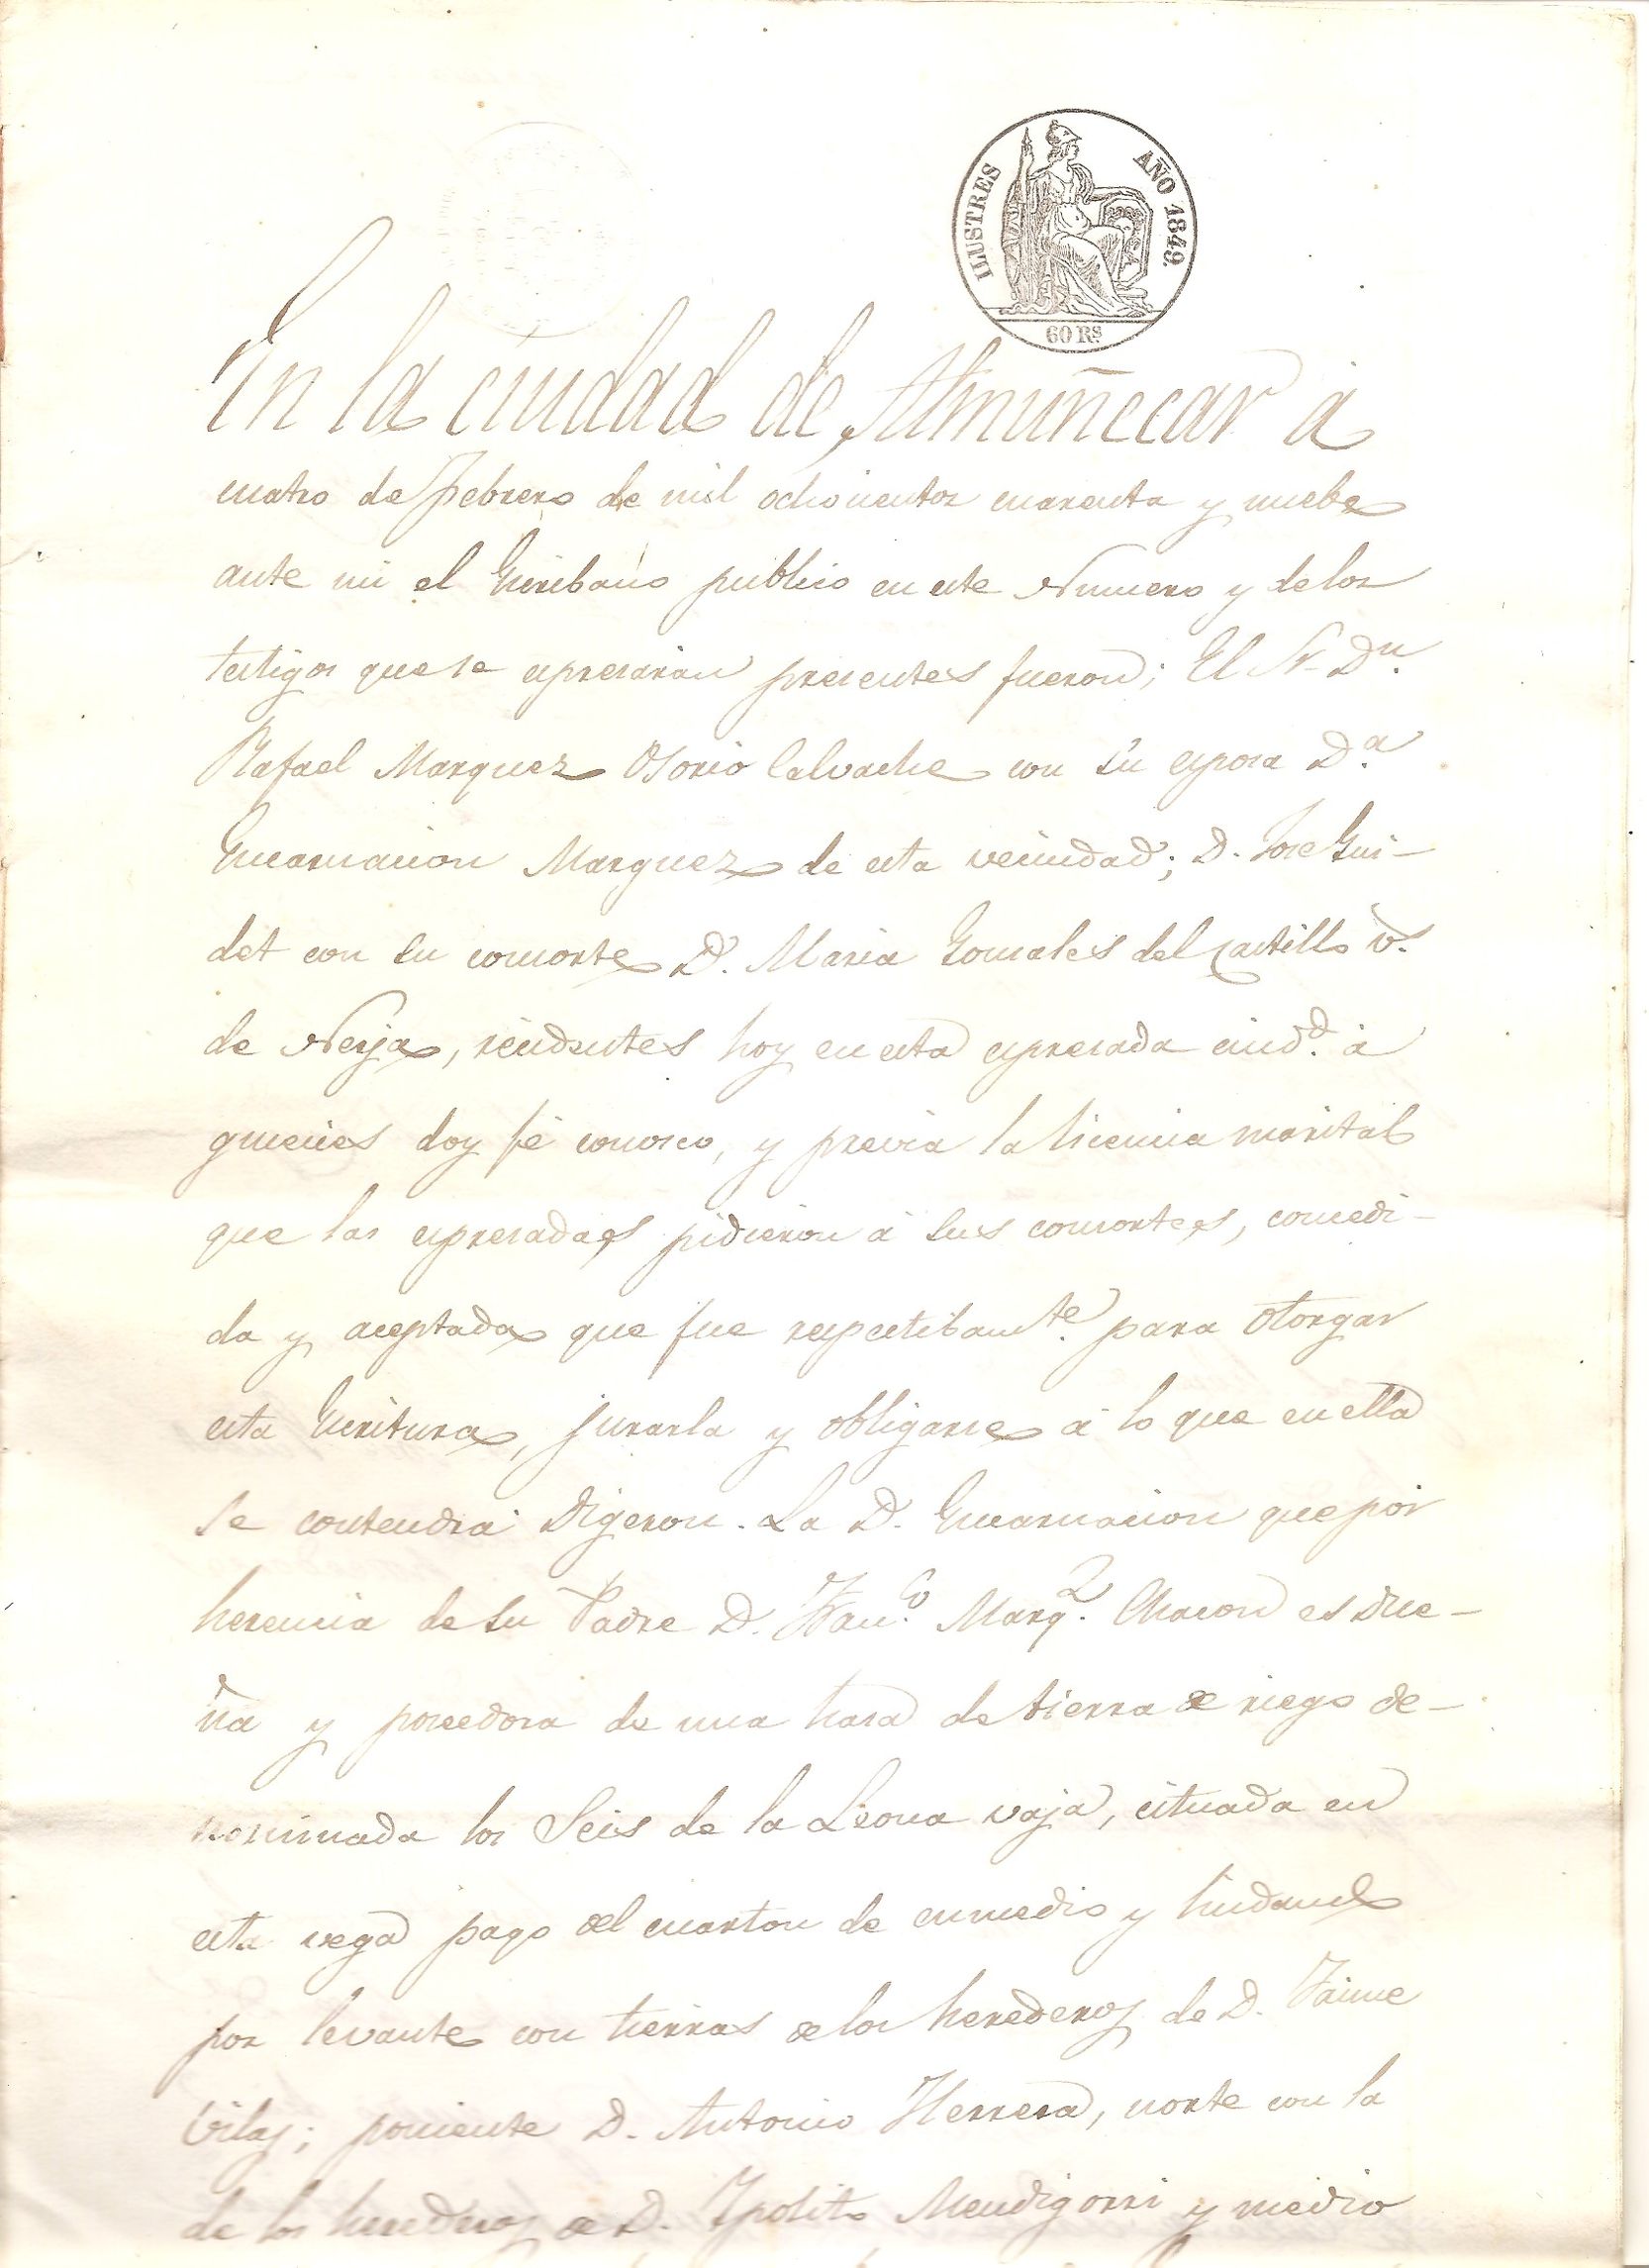 ILUSTRES AÑO 1849.
60 Rs
En la ciudad de Almuñecar á
cuatro de Febrero de mil ochocientos cuarenta y nuebe
ante mi el Escribano publico en este Numero y de los
testigos que se espresarán presentes fueron; El Sr. Dn.
Rafael Marquez Osorio Calvache con su esposa D.a
Encarnacion Marquez de esta vecindad; D. Jose Gui-
det con su consorte D. Maria Gonsales del Castillo v.s
de Nerja, recidentes hoy en esta espresada ciud.d á
quienes doy fé conosco, y previa la licencia marital
que las espresadas pidieron á sus consortes, concedi-
da y aceptada que fue respectibam.te para otorgar
esta Escritura, jurarla y obligarse á lo que en ella
se contendrá Digeron. La D. Encarnacion que por
herencia de su Padre D. Fran.co Marq.z Chacon es due-
ña y poseedora de una hasa de tierra de riego de-
nominada los Seis de la Leona vaja, cituada en
esta vega pago del cuarton de enmedio y lindando
por levante con tierras de los herederos de D. Jaime
Vilas; poniente D. Antonio Herrera, norte con la
de los herederos de D. Ypolito Mendigorri y medio